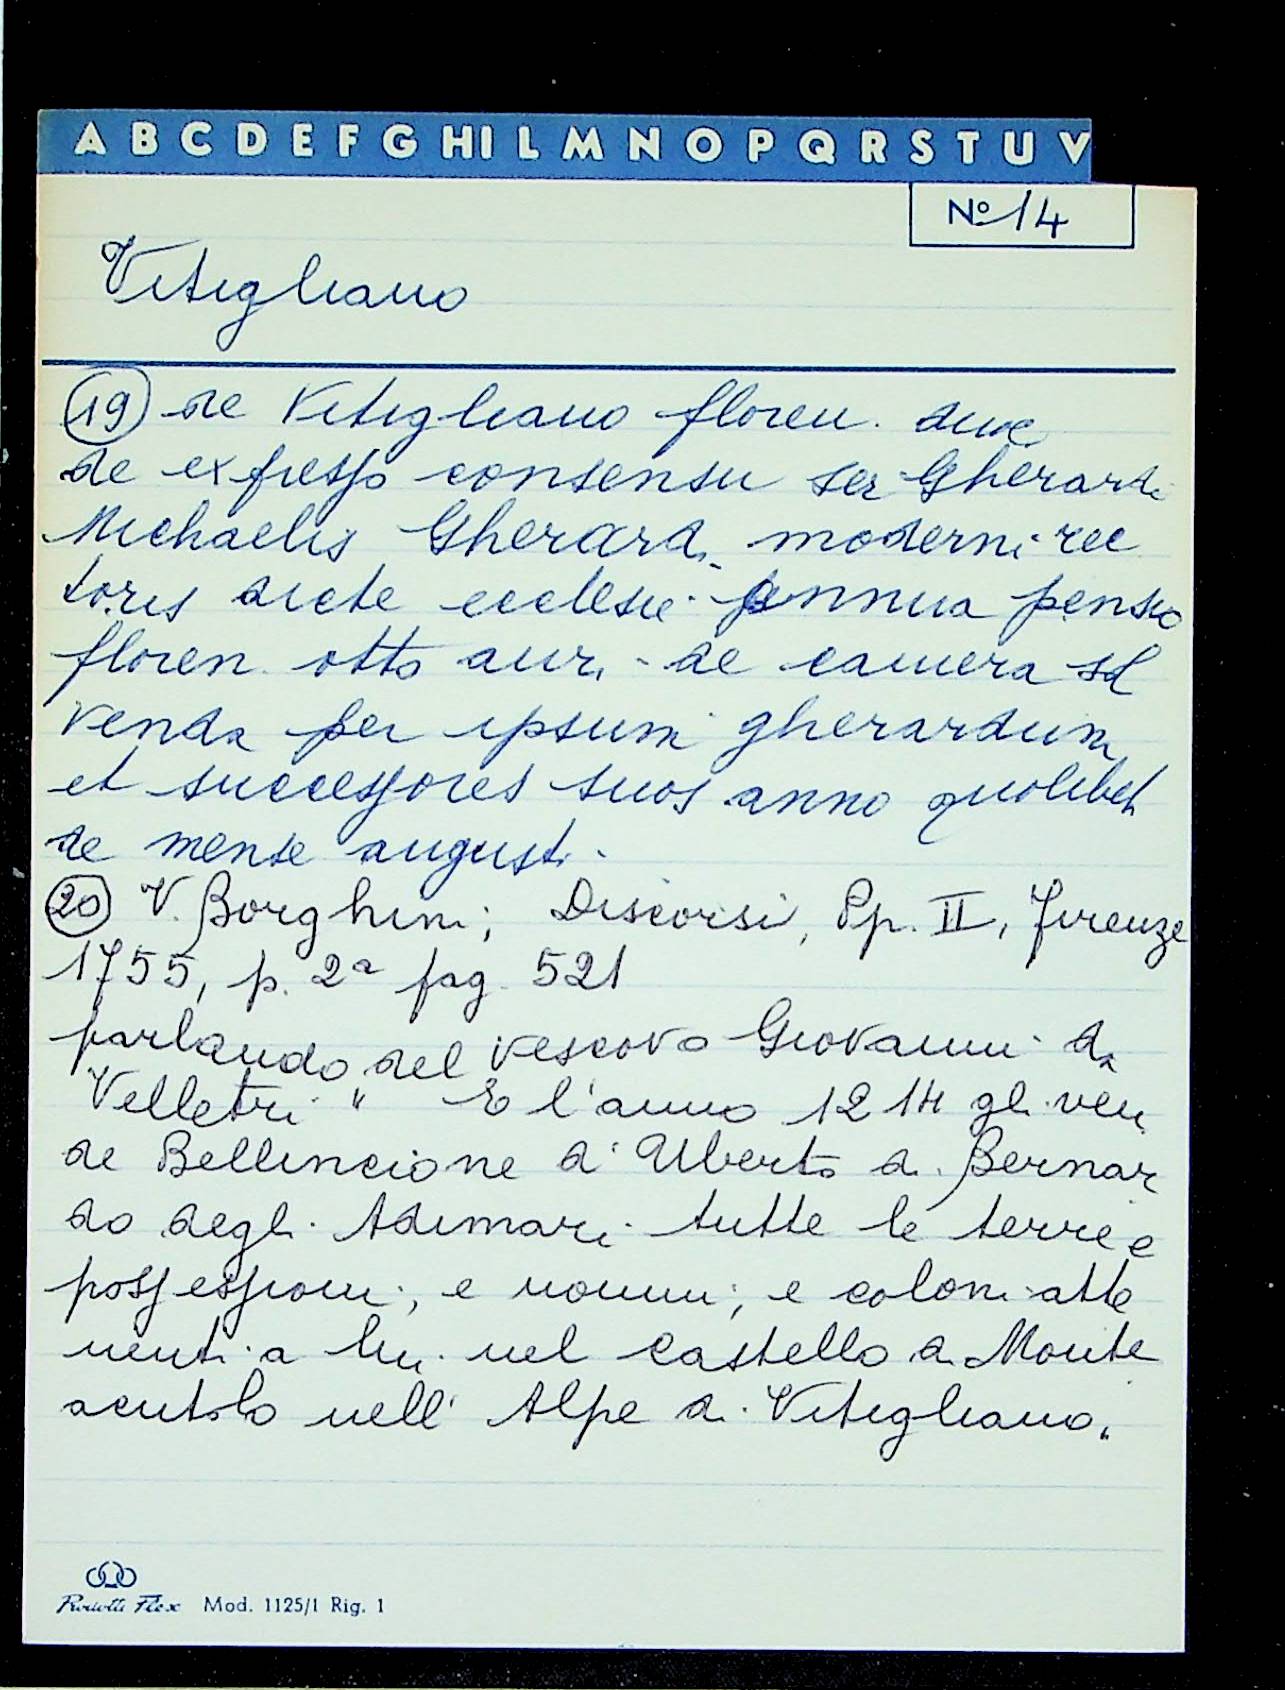 A B C D E F G H I L M N O P Q R S T U V
No 14
Vitigliano
(19) de Vitigliano floren. duc
de expresso consensu ser Gherardi
Michaelis Gherardi moderni rec
toris dicte ecclesie annua pensio
floren. otto auri de camera sol
venda per ipsum gherardum
et successores suos anno quolibet
de mense augusti.
(20) V. Borghini; Discorsi, Pp. II, Firenze
1755, p. 2a pag. 521
parlando del vescovo Giovanni da
Velletri " E l'anno 1214 gli ven
de Bellincione d'Uberto di Bernar
do degli Adimari tutte le terre e
possessioni, e uomini, e coloni atte
nenti a lui nel Castello di Monte
acutolo nell'Alpe di Vitigliano."
Flex Mod. 1125/1 Rig. 1